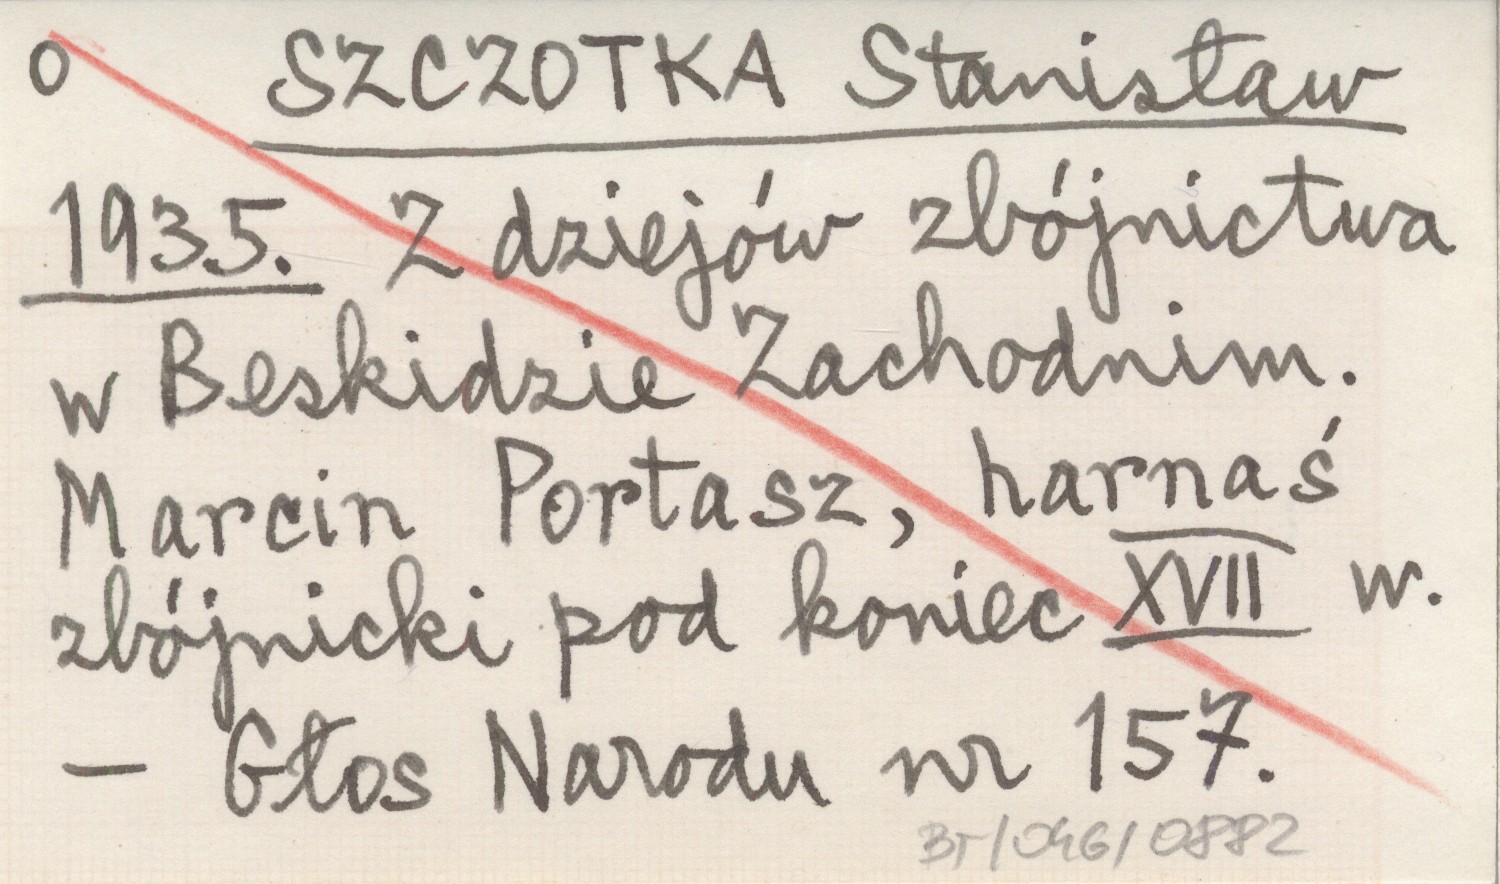 o SZCZOTKA Stanisław
1935. Z dziejów zbójnictwa
w Beskidzie Zachodnim.
Marcin Portasz, harnaś
zbójnicki pod koniec XVII w.
– Głos Narodu nr 157.
BT/046/0882